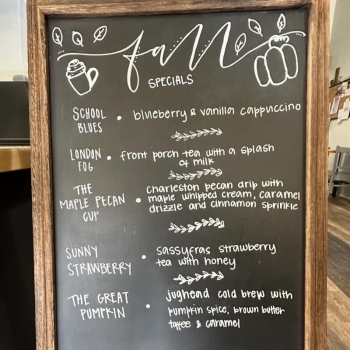 fall
SPECIALS
SCHOOL BLUES • blueberry & vanilla cappuccino
LONDON FOG • front porch tea with a splash
of milk
THE MAPLE PECAN CUP • charleston pecan drip with
maple whipped cream, caramel
drizzle and cinnamon sprinkle
SUNNY STRAWBERRY • sassyfras strawberry
tea with honey
THE GREAT PUMPKIN • jughead cold brew with
pumpkin spice, brown butter
toffee & caramel